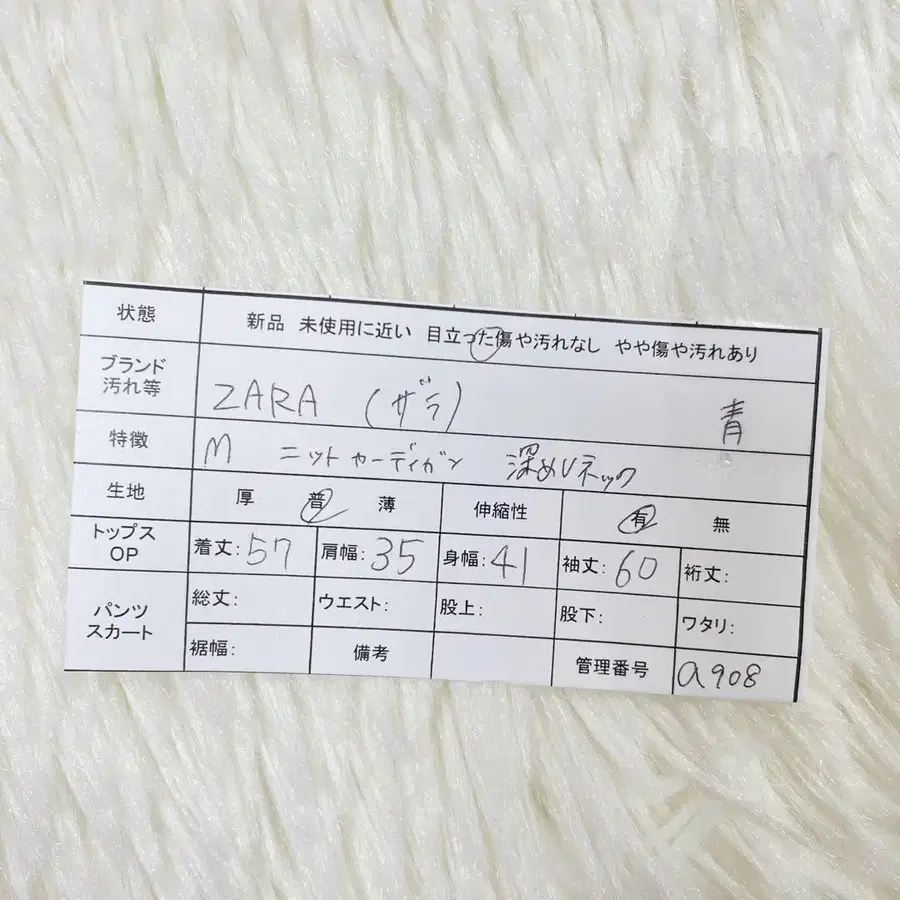 状態 新品 未使用に近い 目立った傷や汚れなし やや傷や汚れあり
ブランド
汚れ等 ZARA (ザラ) 青
特徴 M ニットカーディガン 深めVネック
生地 厚 普 薄 伸縮性 有 無
トップス
OP 着丈:57 肩幅:35 身幅:41 袖丈:60 裄丈:
パンツ
スカート 総丈: ウエスト: 股上: 股下: ワタリ:
裾幅: 備考 管理番号 a908